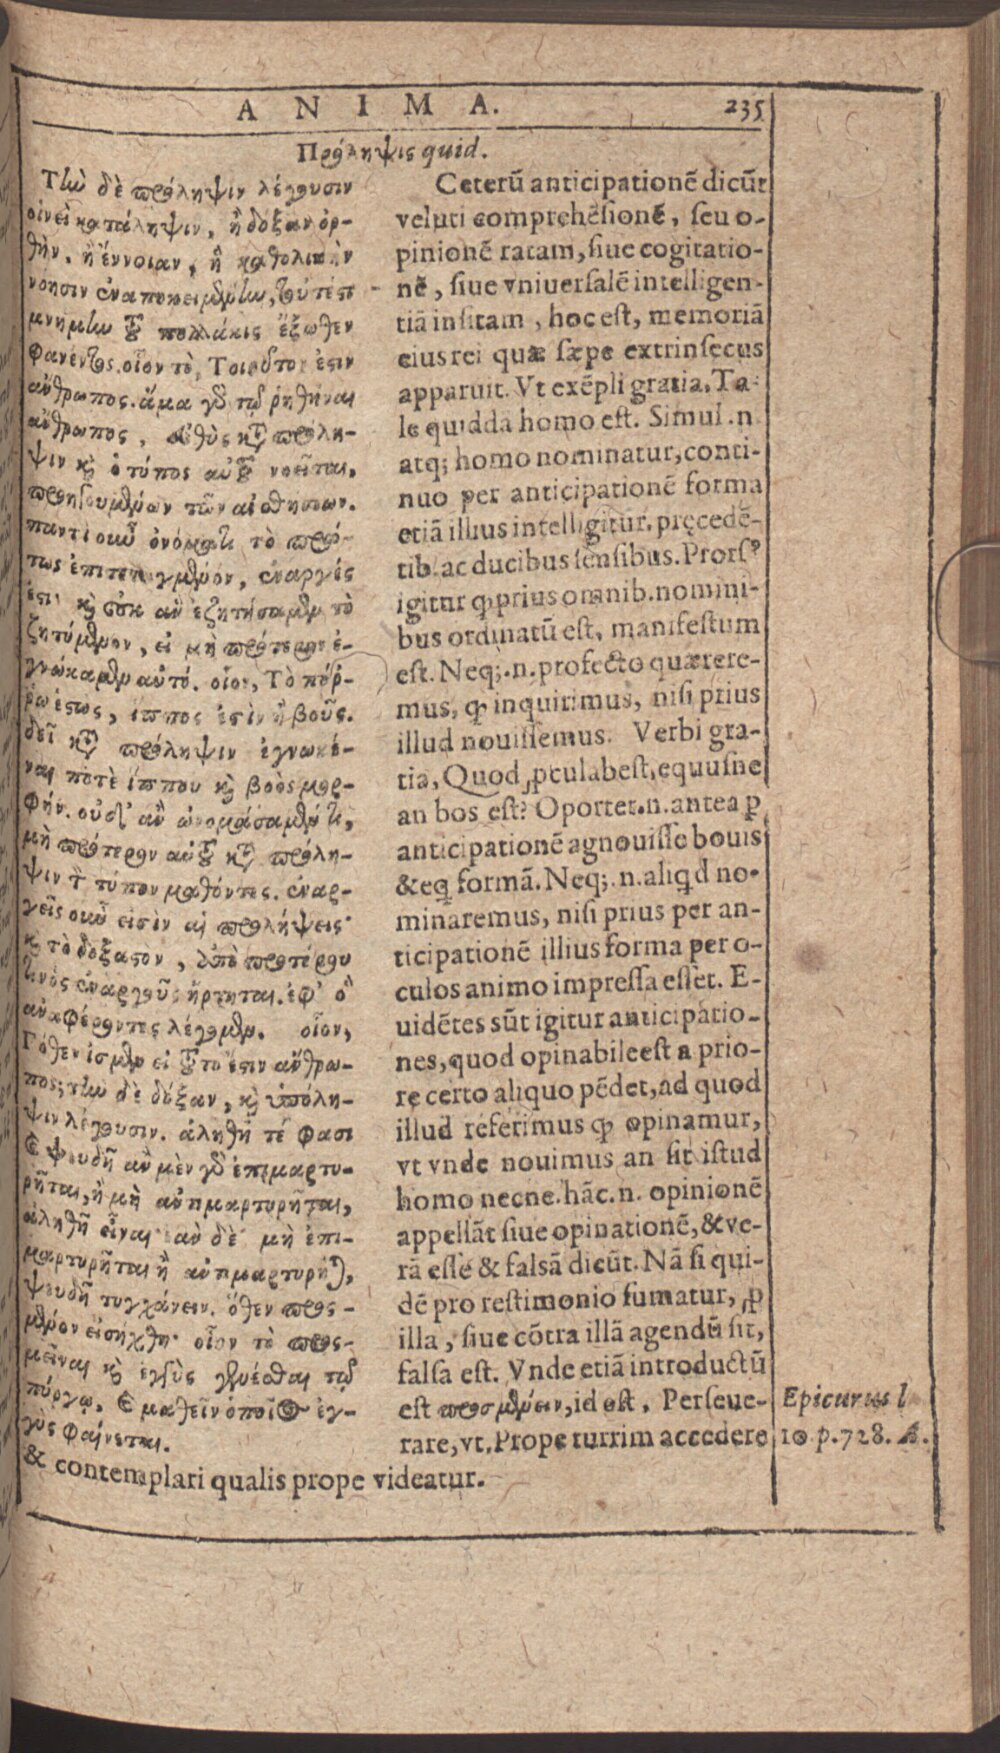 ANIMA. 235
Πρόληψις quid.
Τὴν δὲ πρόληψιν λέγουσιν
οἱνεὶ κατάληψιν, ἢ δόξαν ὀρ-
θὴν, ἢ ἔννοιαν, ἢ καθολικὴν
νόησιν ἐναποκειμένην, τουτέστι
μνήμην τοῦ πολλάκις ἔξωθεν
φανέντος. οἷον τὸ, Τοιοῦτον ἐστιν
ἄνθρωπος. ἅμα γὰρ τῷ ῥηθῆναι
ἄνθρωπος, εὐθὺς κατὰ πρόλη-
ψιν καὶ ὁ τύπος αὐτοῦ νοεῖται,
προηγουμένων τῶν αἰσθήσεων.
παντὶ οὖν ὀνόματι τὸ πρώ-
τως ἐπιτεταγμένον, ἐναργές
ἐστι· καὶ οὐκ ἂν ἐζητήσαμεν τὸ
ζητούμενον, εἰ μὴ πρότερον ἐ-
γνώκαμεν αὐτό. οἷον, Τὸ πόῤ-
ῥω ἑστὼς, ἵππος ἐστὶν ἢ βοῦς.
δεῖ κατὰ πρόληψιν ἐγνωκέ-
ναι ποτὲ ἵππου καὶ βοὸς μορ-
φήν. οὐδ' ἂν ὠνομάσαμέν τι,
μὴ πρότερον αὐτοῦ κατὰ πρόλη-
ψιν τὸν τύπον μαθόντες. ἐναρ-
γεῖς οὖν εἰσὶν αἱ προλήψεις·
καὶ τὸ δοξαστὸν, ἀπὸ προτέρου
τινὸς ἐναργοῦς ἤρτηται. ἐφ' ὃ
ἀναφέροντες λέγομεν. οἷον,
Πόθεν ἴσμεν εἰ τοῦτο ἐστιν ἄνθρω-
πος; τὴν δὲ δόξαν, καὶ ὑπόλη-
ψιν λέγουσιν. ἀληθῆ τέ φασι
καὶ ψευδῆ ἂν μὲν γὰρ ἐπιμαρτυ-
ρῆται, ἢ μὴ ἀντιμαρτυρῆται,
ἀληθῆ εἶναι· ἐὰν δὲ μὴ ἐπι-
μαρτυρῆται ἢ ἀντιμαρτυρῆται,
ψευδῆ τυγχάνειν. ὅθεν προσ-
μένον εἰσήχθη· οἷον τὸ προσ-
μεῖναι καὶ ἐγγὺς γενέσθαι τῷ
πύργῳ, καὶ μαθεῖν ὁποῖος ἐγ-
γὺς φαίνεται.
Ceterũ anticipationẽ dicũt
veluti comprehẽsionẽ, seu o-
pinionẽ ratam, siue cogitatio-
nẽ, siue vniuersalẽ intelligen-
tiã insitam, hoc est, memoriã
eius rei quæ sæpe extrinsecus
apparuit. Vt exẽpli gratia. Ta-
le quiddã homo est. Simul .n.
atq; homo nominatur, conti-
nuo per anticipationẽ forma
etiã illius intelligitur. pręcedẽ-
tib. ac ducibus sensibus. Prorsꝰ
igitur ꝙ prius omnib. nomini-
bus ordinatũ est, manifestum
est. Neq; .n. profecto quærere-
mus, ꝙ inquirimus, nisi prius
illud nouissemus. Verbi gra-
tia, Quod ꝓcul abest, equusne
an bos est? Oportet .n. antea ꝑ
anticipationẽ agnouisse bouis
& eq formã. Neq; .n. aliqd no-
minaremus, nisi prius per an-
ticipationẽ illius forma per o-
culos animo impressa esset. E-
uidẽtes sũt igitur anticipatio-
nes, quod opinabile est a prio-
re certo aliquo pẽdet, ad quod
illud referimus ꝙ opinamur,
vt vnde nouimus an sit istud
homo necne. hãc .n. opinionẽ
appellãt siue opinationẽ, & ve-
rã esse & falsã dicũt. Nã si qui-
dẽ pro testimonio sumatur, ꝓ
illa, siue cõtra illã agendũ sit,
falsa est. Vnde etiã introductũ
est προσμένειν, id est, Perseue-
rare, vt, Prope turrim accedere
& contemplari qualis prope videatur.
Epicurus l
10 p. 728. A.